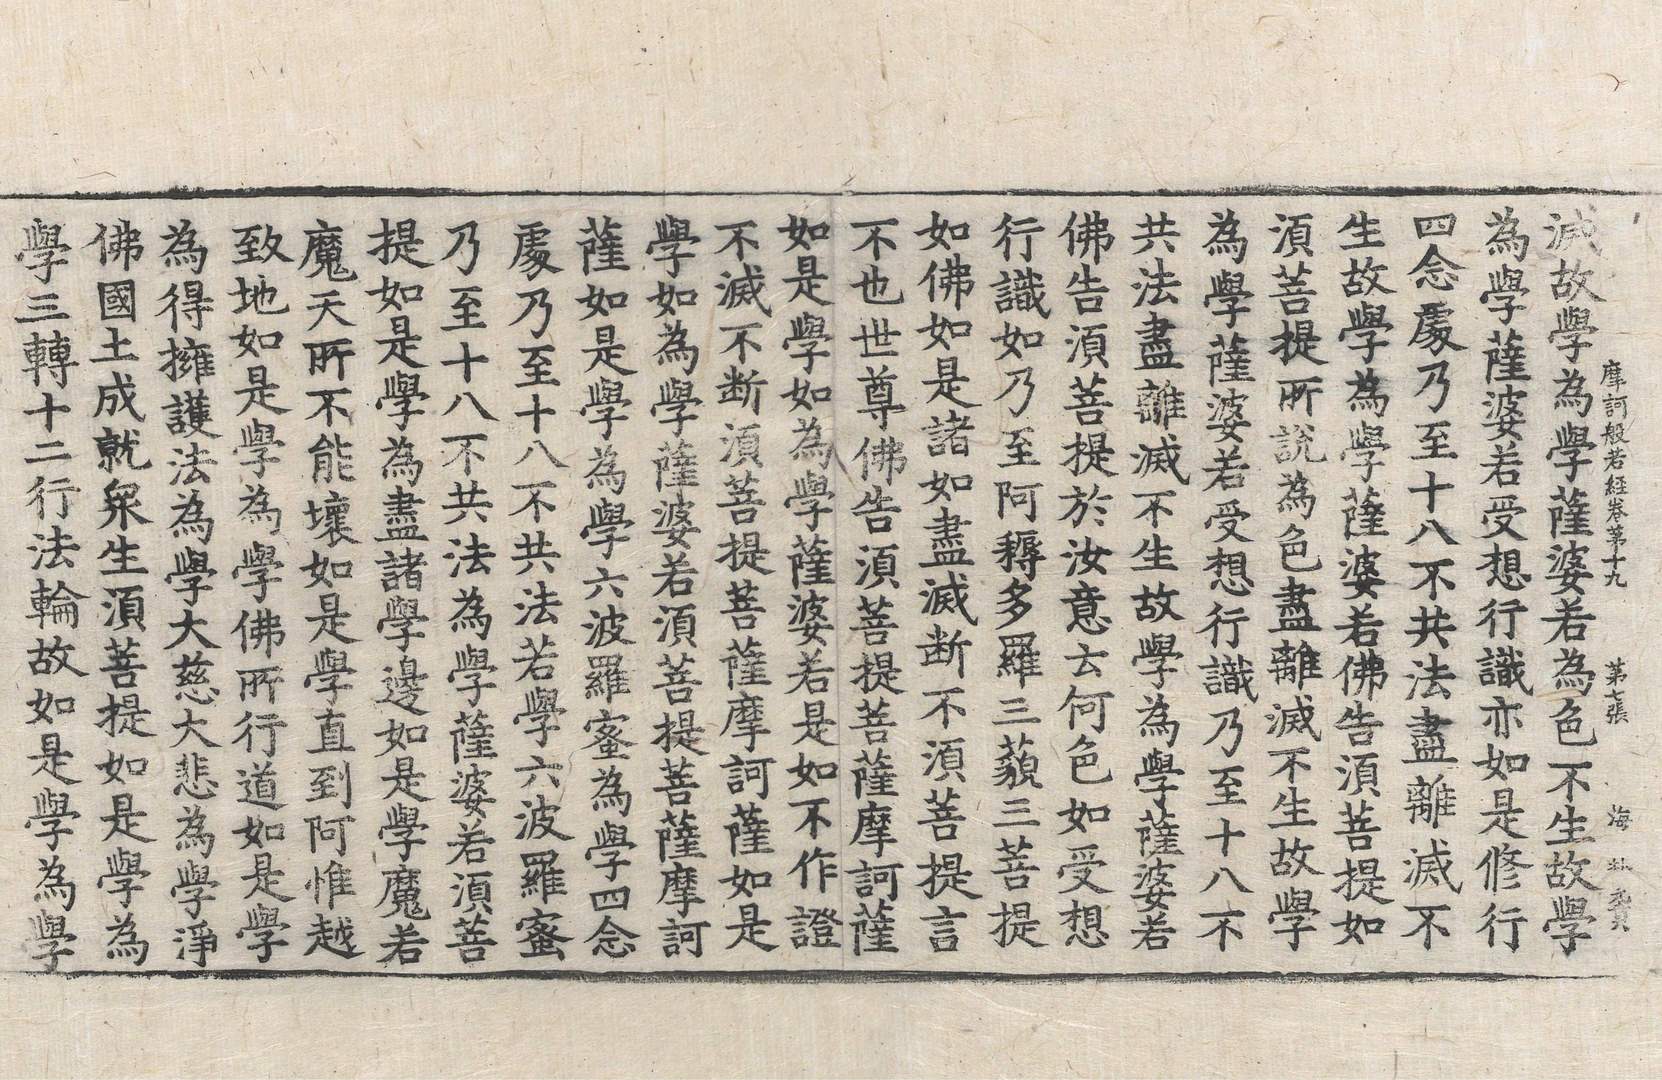 摩訶般若經卷第十九 第七張 海
滅故學為學薩婆若為色不生故學
為學薩婆若受想行識亦如是修行
四念處乃至十八不共法盡離滅不
生故學為學薩婆若佛告湏菩提如
湏菩提所說為色盡離滅不生故學
為學薩婆若受想行識乃至十八不
共法盡離滅不生故學為學薩婆若
佛告湏菩提於汝意云何色如受想
行識如乃至阿耨多羅三藐三菩提
如佛如是諸如盡滅断不湏菩提言
不也世尊佛告湏菩提菩薩摩訶薩
如是學如為學薩婆若是如不作證
不滅不断湏菩提菩薩摩訶薩如是
學如為學薩婆若湏菩提菩薩摩訶
薩如是學為學六波羅蜜為學四念
處乃至十八不共法若學六波羅蜜
乃至十八不共法為學薩婆若湏菩
提如是學為盡諸學邊如是學魔若
魔天所不能壞如是學直到阿惟越
致地如是學為學佛所行道如是學
為得擁護法為學大慈大悲為學淨
佛國土成就衆生湏菩提如是學為
學三轉十二行法輪故如是學為學